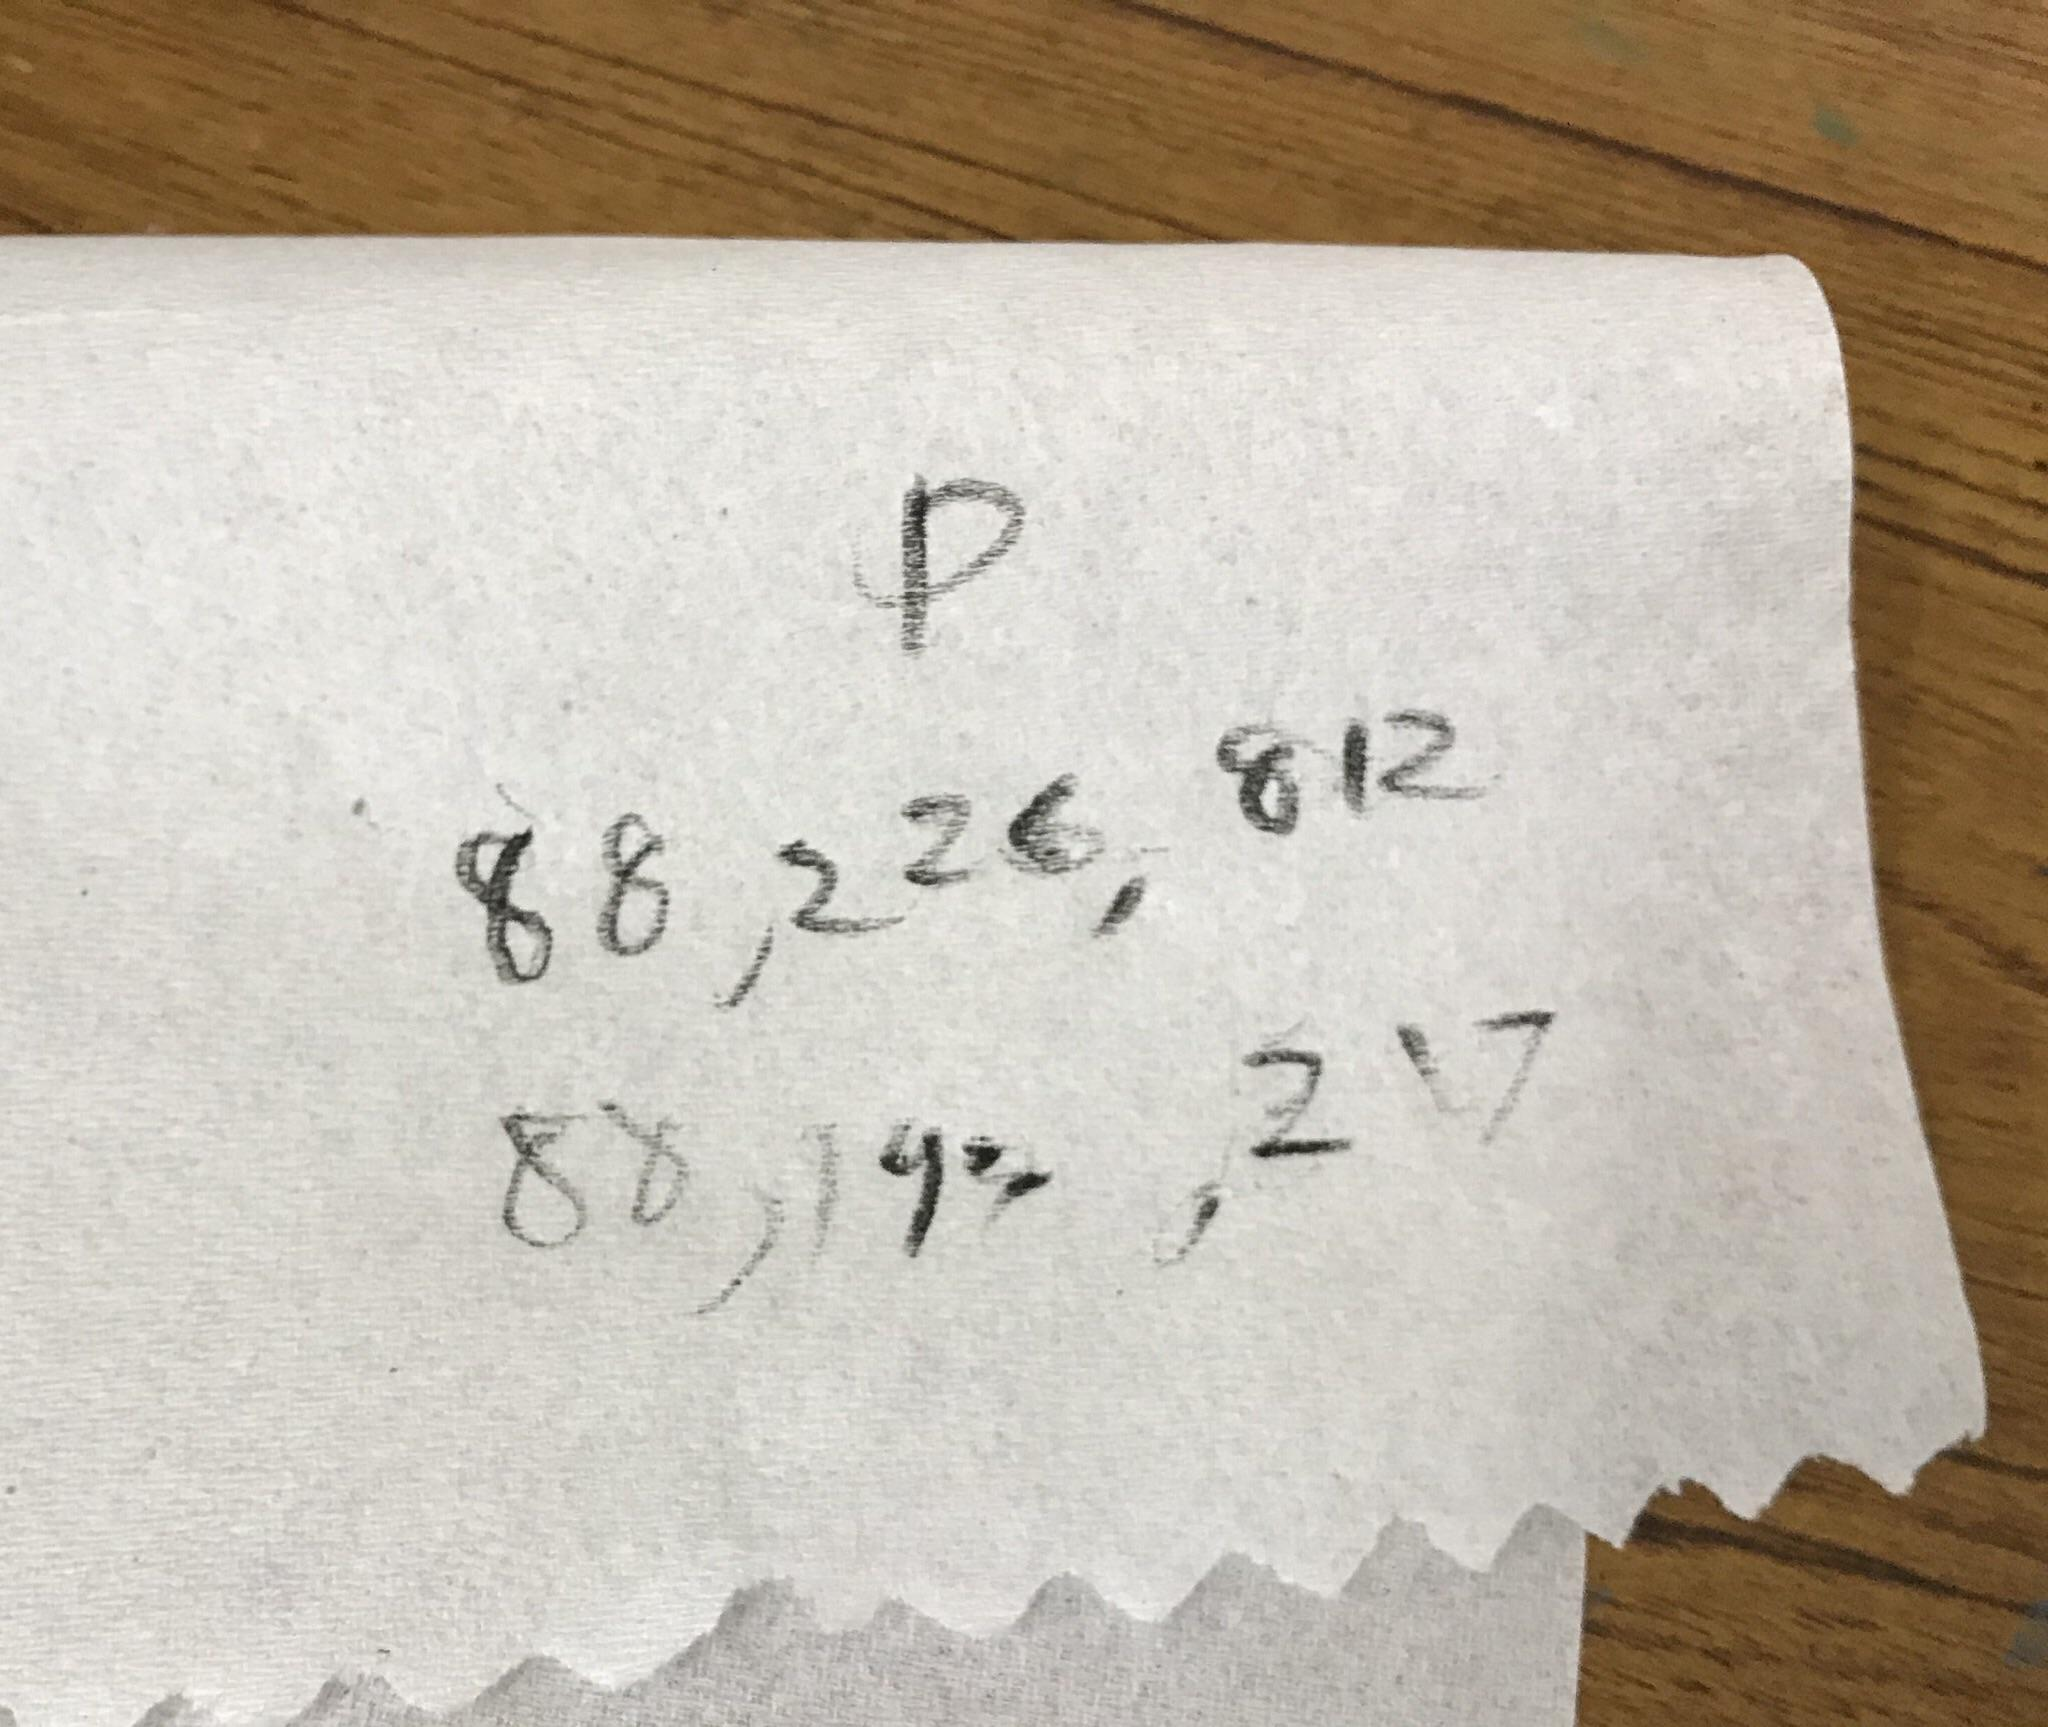 P
88,226,812
88,193,217